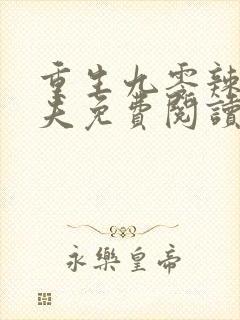 重生九零辣
夫免費閱讀
永樂皇帝